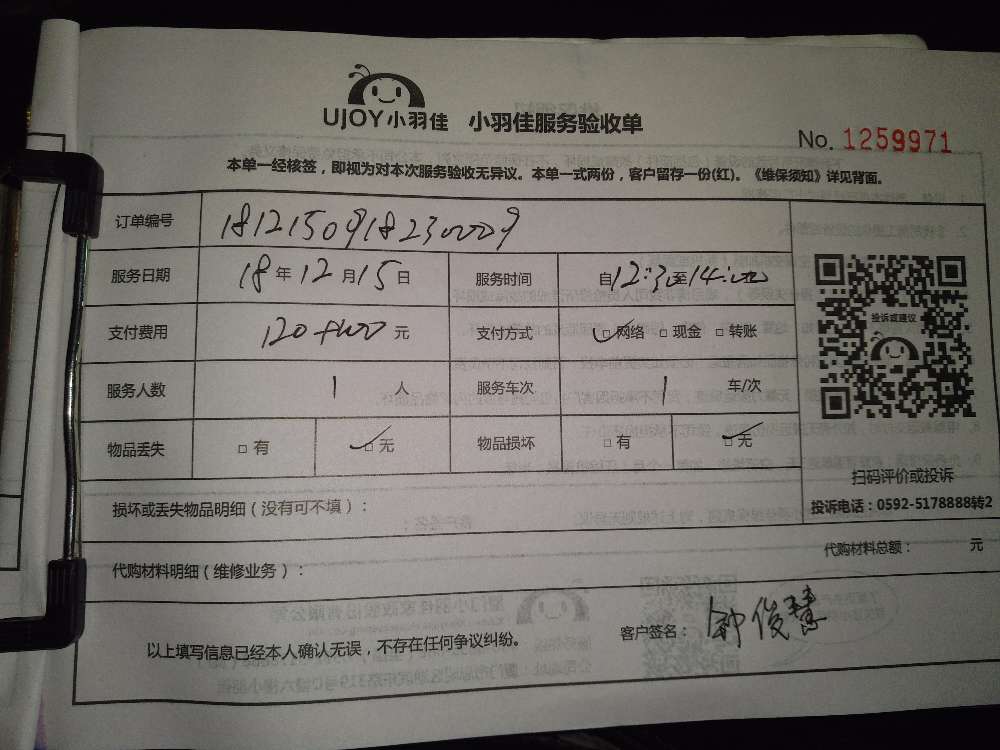 UJOY小羽佳 小羽佳服务验收单
No. 1259971
本单一经核签，即视为对本次服务验收无异议。本单一式两份，客户留存一份(红)。《维保须知》详见背面。
订单编号 1812150918230009
服务日期 18年12月15日 服务时间 自12:30至14:00
支付费用 120+100元 支付方式 ☑网络 □现金 □转账
服务人数 1 人 服务车次 1 车/次
物品丢失 □有 ☑无 物品损坏 □有 ☑无
投诉或建议
扫码评价或投诉
投诉电话：0592-5178888转2
损坏或丢失物品明细（没有可不填）：
代购材料总额： 元
代购材料明细（维修业务）：
以上填写信息已经本人确认无误，不存在任何争议纠纷。
客户签名：钟俊慧